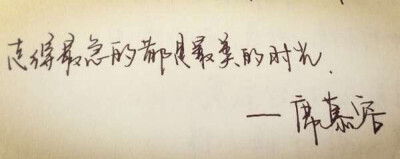 走得最急的都是最美的时光.
—席慕容